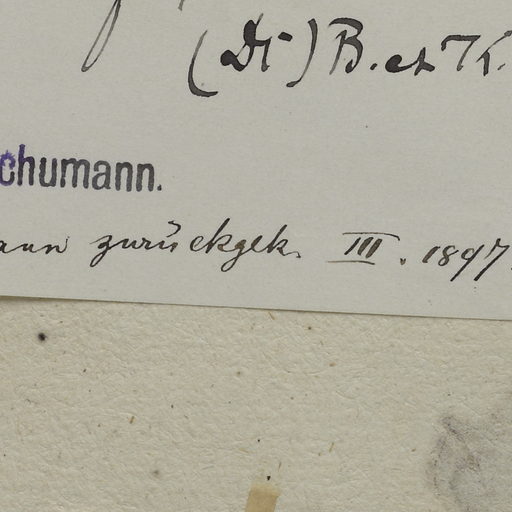 (Dt) B. et K.
chumann.
ann zurückgek. III. 1897.